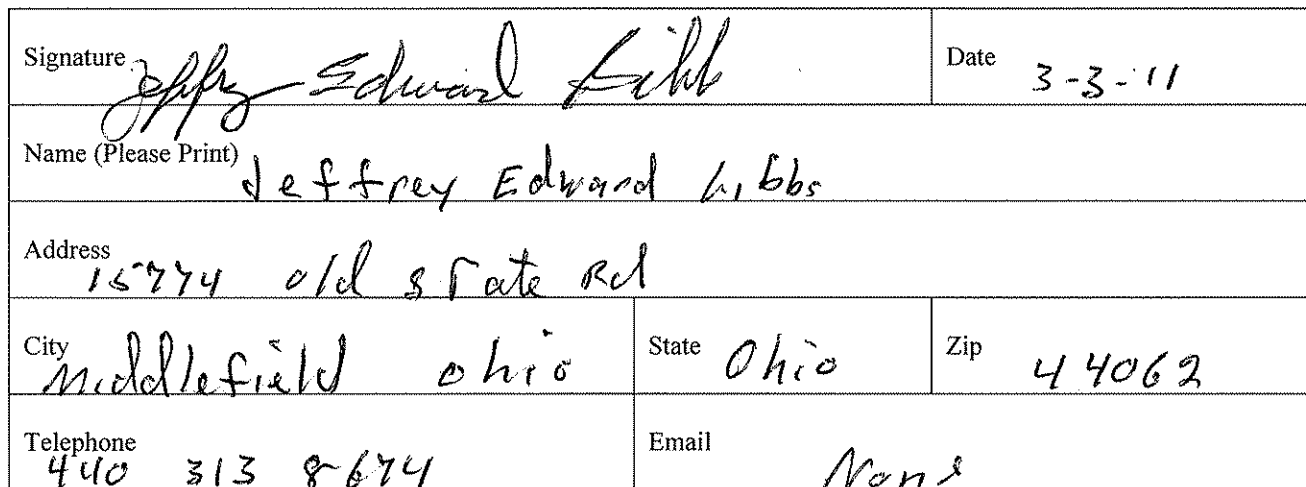 Signature Jeffry Edward Gibb Date 3-3-11
Name (Please Print) Jeffrey Edward Gibbs
Address 15774 old state Rd
City Middlefield ohio State Ohio Zip 44062
Telephone 440 313 8674 Email None